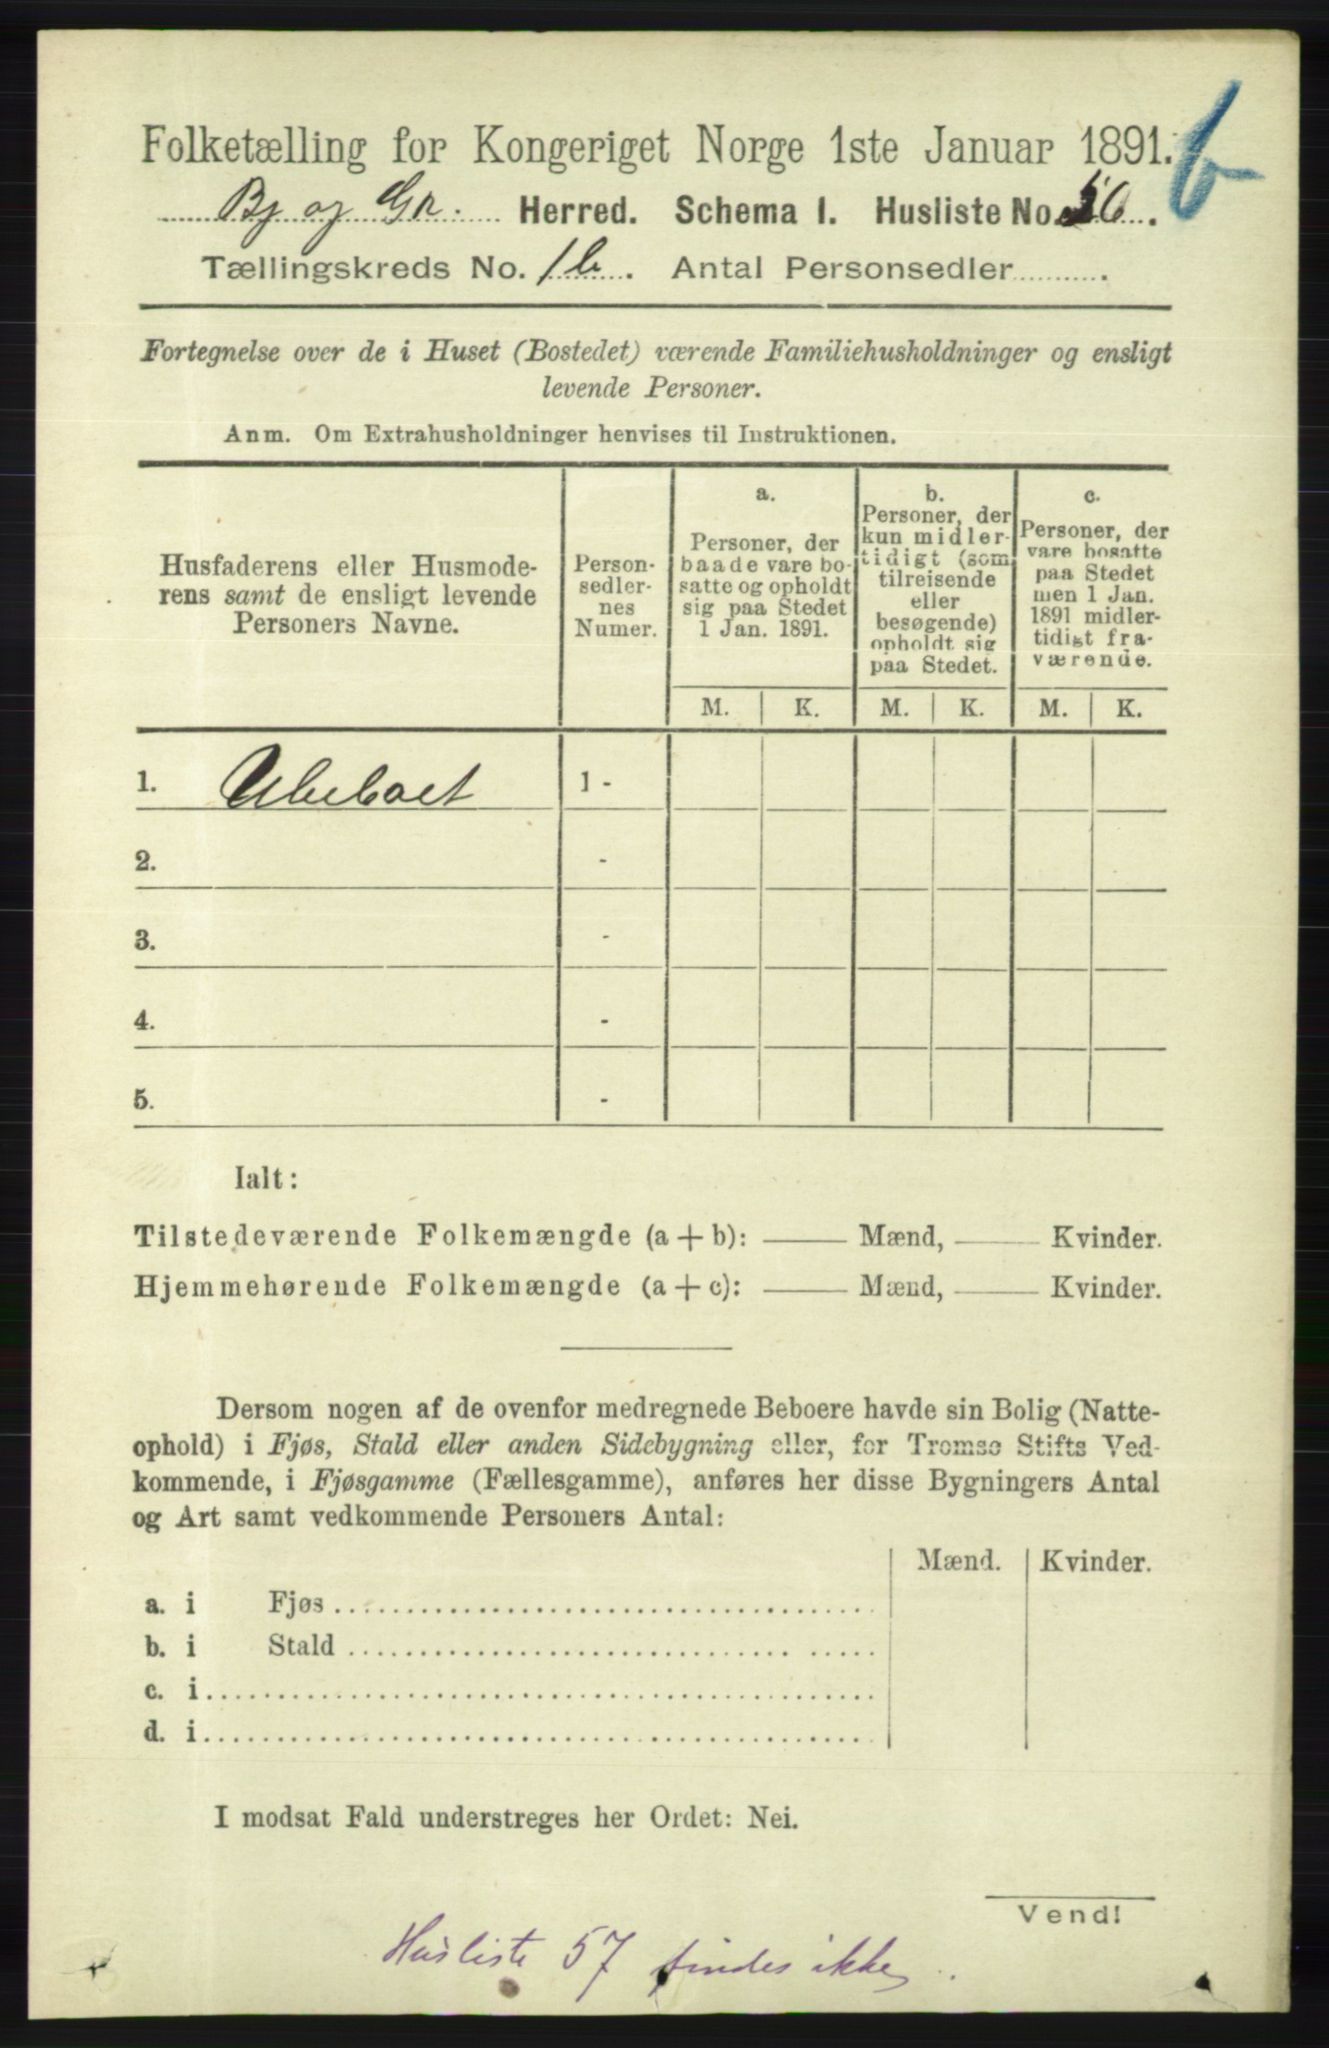 Folketælling for Kongeriget Norge 1ste Januar 1891.
Bj og Gr. Herred. Schema 1. Husliste No. 56.
Tællingskreds No. 1b. Antal Personsedler.
Fortegnelse over de i Huset (Bostedet) værende Familiehusholdninger og ensligt
levende Personer.
Anm. Om Extrahusholdninger henvises til Instruktionen.
Husfaderens eller Husmode-
rens samt de ensligt levende
Personers Navne.
Person-
sedler-
nes
Numer.
a.
Personer, der
baade vare bo-
satte og opholdt
sig paa Stedet
1 Jan. 1891.
b.
Personer, der
kun midler-
tidigt (som
tilreisende
eller
besøgende)
opholdt sig
paa Stedet.
c.
Personer, der
vare bosatte
paa Stedet
men 1 Jan.
1891 midler-
tidigt fra-
værende.
M. K. M. K. M. K.
1. Ubeboet 1 -
2. -
3. -
4. -
5. -
Ialt:
Tilstedeværende Folkemængde (a + b): —— Mænd, —— Kvinder.
Hjemmehørende Folkemængde (a + c): —— Mænd, —— Kvinder.
Dersom nogen af de ovenfor medregnede Beboere havde sin Bolig (Natte-
ophold) i Fjøs, Stald eller anden Sidebygning eller, for Tromsø Stifts Ved-
kommende, i Fjøsgamme (Fællesgamme), anføres her disse Bygningers Antal
og Art samt vedkommende Personers Antal:
Mænd. Kvinder.
a. i Fjøs
b. i Stald
c. i
d. i
I modsat Fald understreges her Ordet: Nei.
Vend!
Husliste 57 findes ikke.